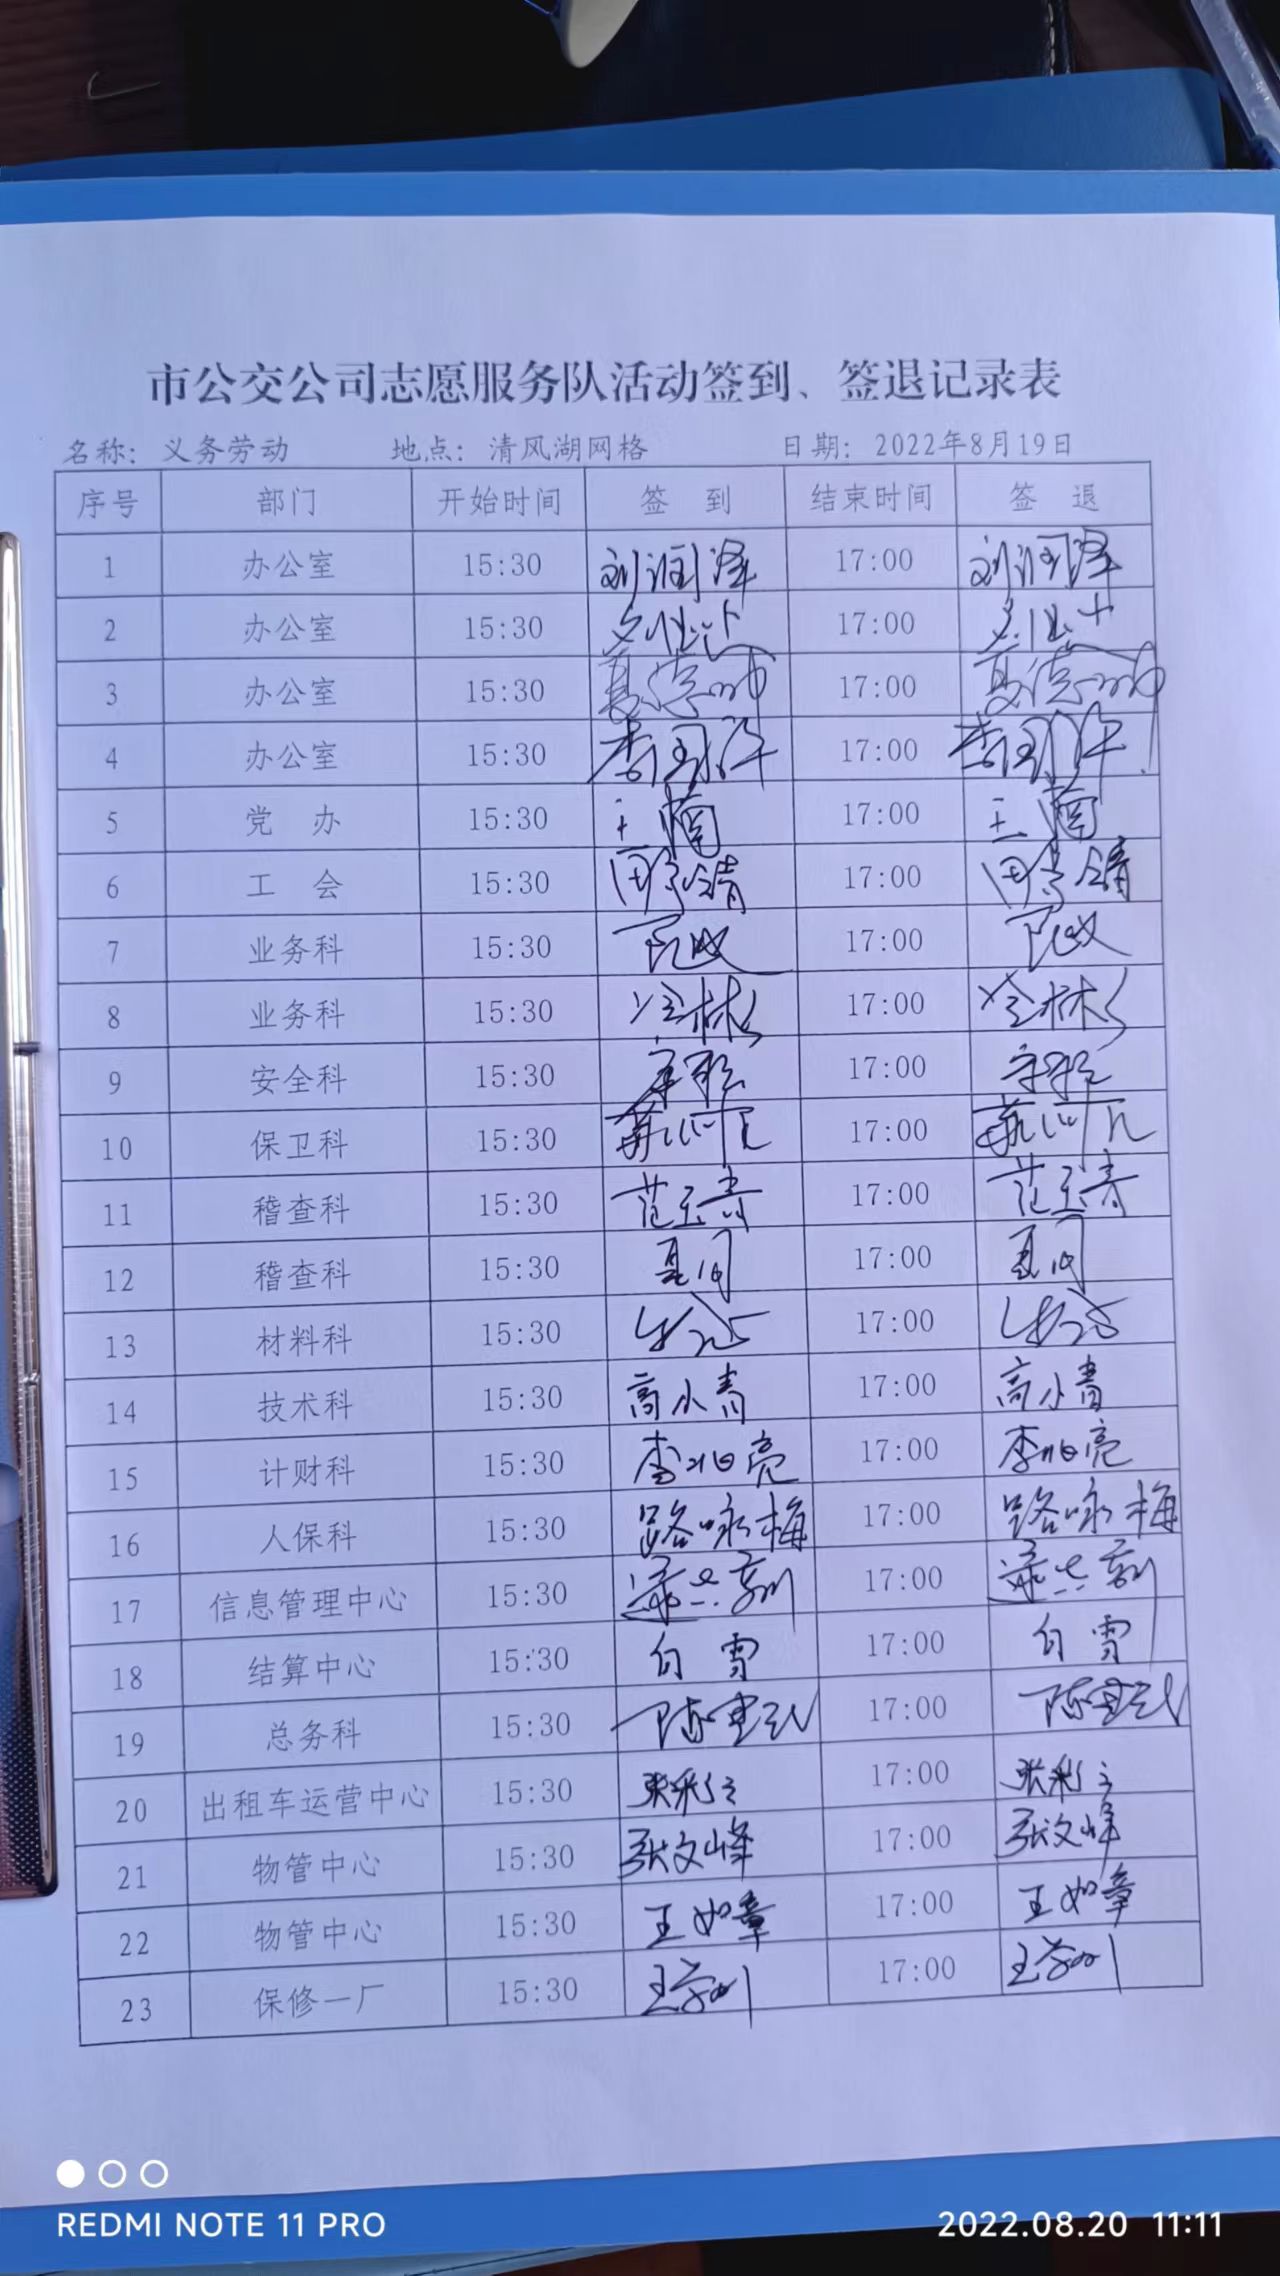 市公交公司志愿服务队活动签到、签退记录表
名称：义务劳动 地点：清风湖网格 日期：2022年8月19日
序号 部门 开始时间 签 到 结束时间 签 退
1 办公室 15:30 刘润泽 17:00 刘润泽
2 办公室 15:30 17:00
3 办公室 15:30 17:00
4 办公室 15:30 17:00
5 党 办 15:30 17:00
6 工 会 15:30 17:00
7 业务科 15:30 17:00
8 业务科 15:30 17:00
9 安全科 15:30 17:00
10 保卫科 15:30 17:00
11 稽查科 15:30 范玉青 17:00 范玉青
12 稽查科 15:30 17:00
13 材料科 15:30 17:00
14 技术科 15:30 高小青 17:00 高小青
15 计财科 15:30 李兆亮 17:00 李兆亮
16 人保科 15:30 路咏梅 17:00 路咏梅
17 信息管理中心 15:30 17:00
18 结算中心 15:30 白雪 17:00 白雪
19 总务科 15:30 17:00
20 出租车运营中心 15:30 17:00
21 物管中心 15:30 张文峰 17:00 张文峰
22 物管中心 15:30 王如章 17:00 王如章
23 保修一厂 15:30 17:00
REDMI NOTE 11 PRO 2022.08.20 11:11